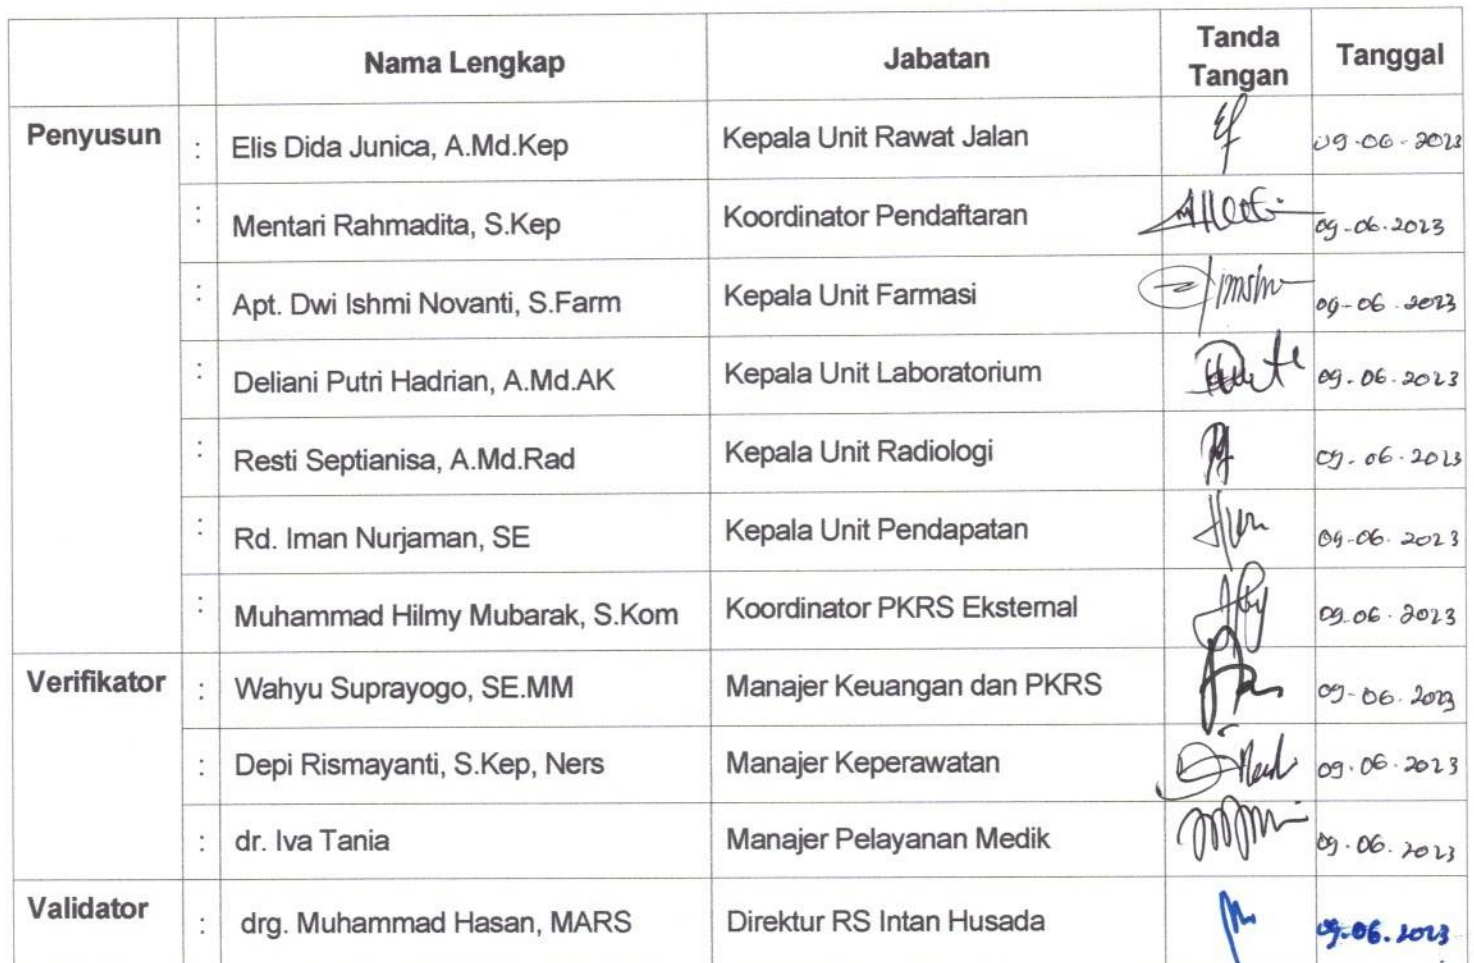 Nama Lengkap Jabatan Tanda Tangan Tanggal
Penyusun : Elis Dida Junica, A.Md.Kep Kepala Unit Rawat Jalan 09-06-2023
: Mentari Rahmadita, S.Kep Koordinator Pendaftaran 09-06-2023
: Apt. Dwi Ishmi Novanti, S.Farm Kepala Unit Farmasi 09-06-2023
: Deliani Putri Hadrian, A.Md.AK Kepala Unit Laboratorium 09-06-2023
: Resti Septianisa, A.Md.Rad Kepala Unit Radiologi 09-06-2023
: Rd. Iman Nurjaman, SE Kepala Unit Pendapatan 09-06-2023
: Muhammad Hilmy Mubarak, S.Kom Koordinator PKRS Eksternal 09-06-2023
Verifikator : Wahyu Suprayogo, SE.MM Manajer Keuangan dan PKRS 09-06-2023
: Depi Rismayanti, S.Kep, Ners Manajer Keperawatan 09-06-2023
: dr. Iva Tania Manajer Pelayanan Medik 09-06-2023
Validator : drg. Muhammad Hasan, MARS Direktur RS Intan Husada 09-06-2023